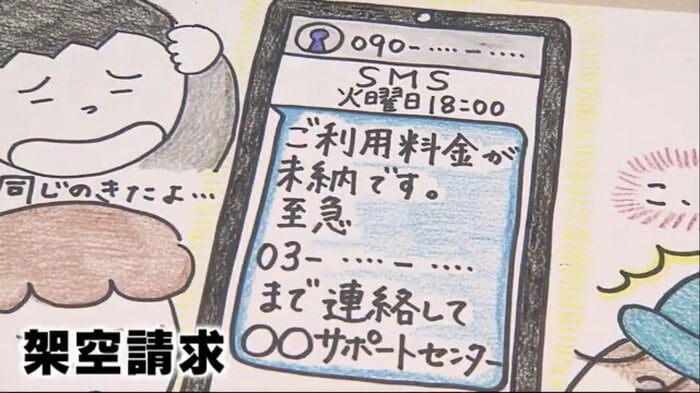 090-‥‥-‥‥
SMS
火曜日18:00
ご利用料金が
未納です。
至急
03-‥‥-‥‥
まで連絡して
○○サポートセンター
同じのきたよ…
こ、
架空請求